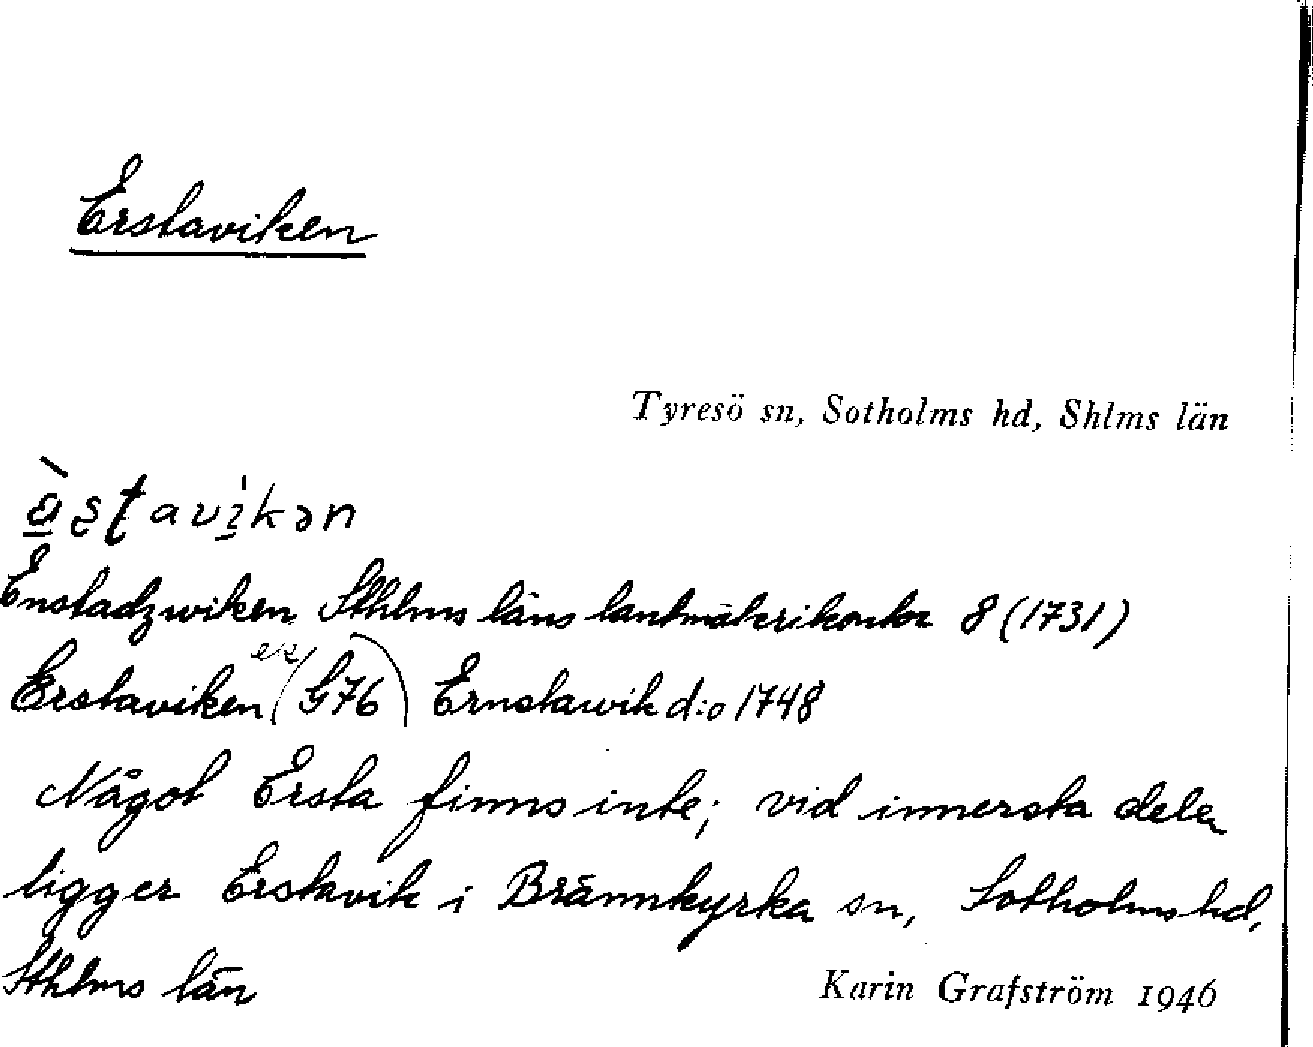 Erstaviken
Tyresö sn, Sotholms hd, Shlms län
a̠̋ş̌tavi̠kən
Enstadzwiken Sthlms läns lantmäterikontor 8 (1731)
Erstaviken (ek G76) Ernstawik d:o 1748
Något Ersta finns inte; vid innersta delen
ligger Erstavik i Brännkyrka sn, Sotholms hd,
Sthlms län
Karin Grafström 1946